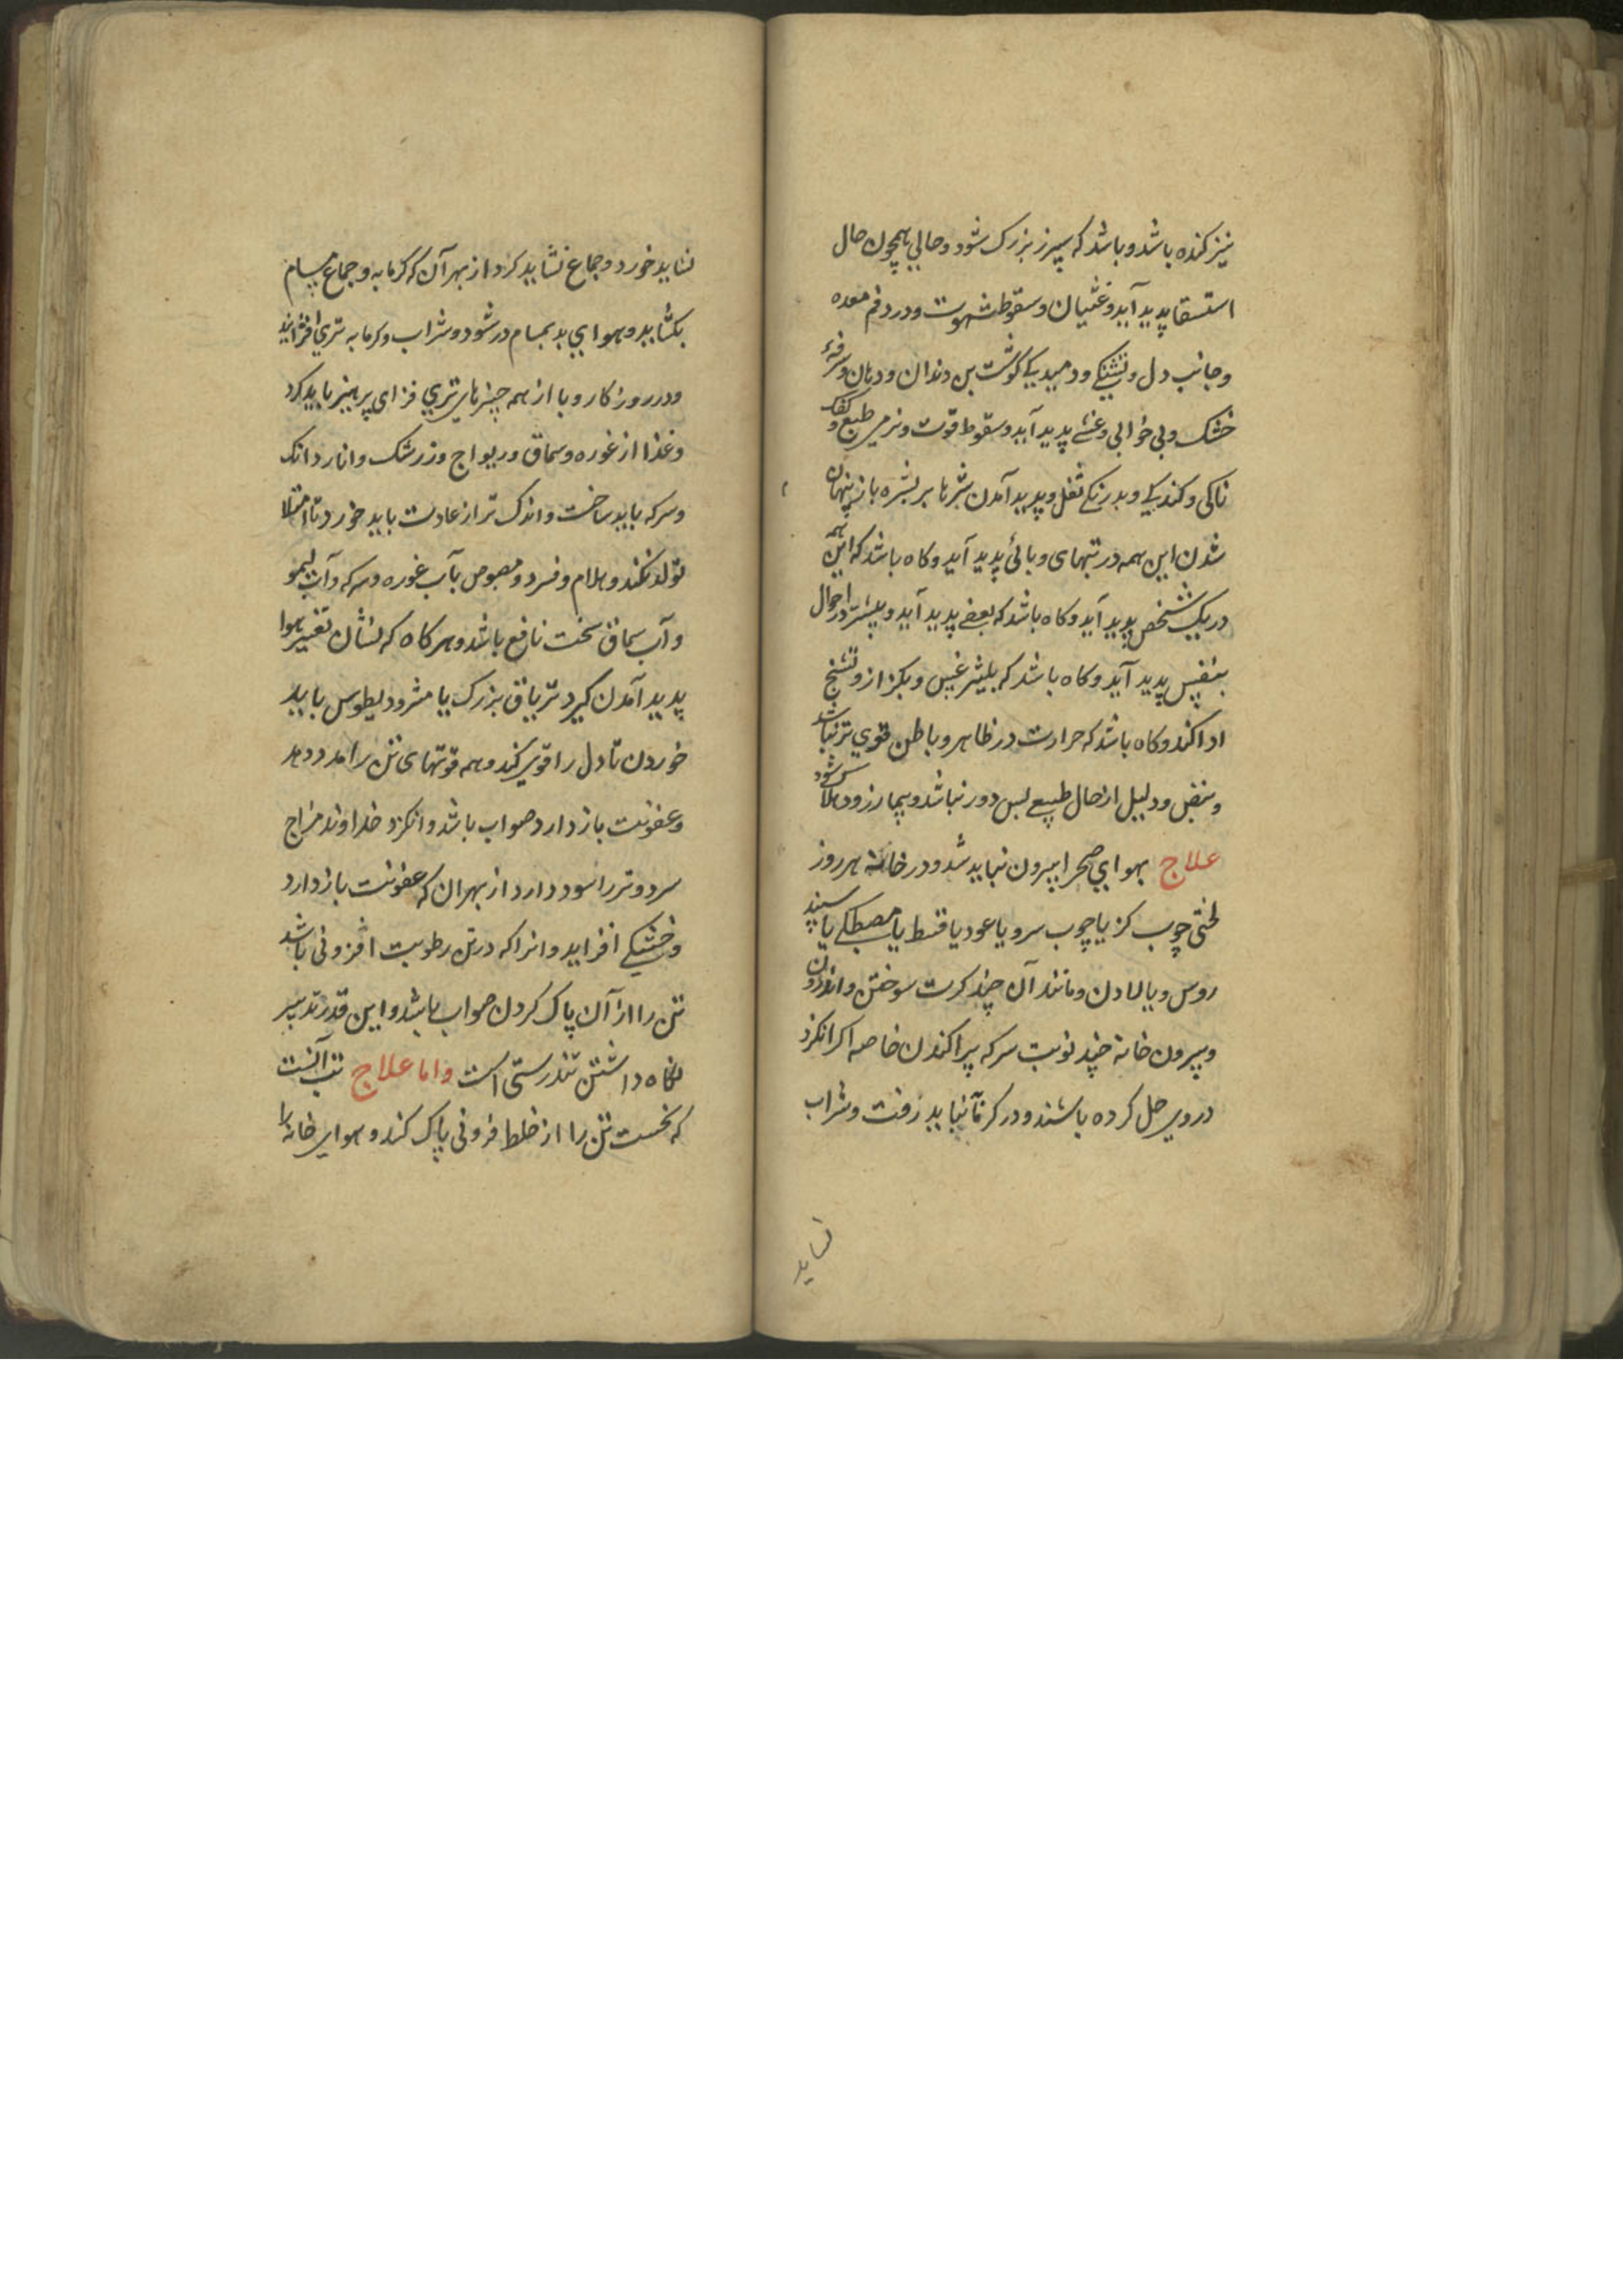 نیز کنده باشد و باشد که سپرز بزرک شود و حالی همچون حال
استسقا پدید آید و غثیان و سقوط شهوت و درد فم معده
و جانب دل و تشنکی و دمیدکی کوشت بن دندان و دهان و سرفهٔ
خشک و بی خوابی و غشی پدید آید و سقوط قوت و نرمی طبع و کفک
ناکی و کندکی و بدرنکی ثفل و پدید آمدن بثرها بر بشره باز پنهان
شدن این همه در تبهای وبائی پدید آید و کاه باشد که این همه
در یک شخص پدید آید و کاه باشد که بعضی پدید آید و بیشتر در احوال
بنفس پدید آید و کاه باشد که و تشنج
ادا کند و کاه باشد که حرارت در ظاهر و باطن قوی تر نباشد
و نبض و دلیل از حال طبیعی بس دور نباشد و بیمار زود هلاک شود
علاج بهوای صحرا بیرون نباید شد و در خانه هر روز
لختی چوب کز یا چوب سرو یا عود یا قسط یا مصطکی یا سپند
روس و یا لادن و مانند آن چند کرت سوختن و اندرون
و بیرون خانه چند نوبت سرکه پراکندن خاصه اکر انکزد
در وی حل کرده باشند و در کرما نباید رفت و شراب
نشاید
نشاید خورد و جماع نشاید کرد از بهر آن که کرمابه و جماع مسام
بکشاید و هوای بد بمسام در شود و شراب و کرمابه تری افزاید
و در روزکار وبا از همه چیزهای تری فزای پرهیز باید کرد
و غذا از غوره و سماق و ریواج و زرشک و انار دانک
و سرکه باید ساخت و اندک تر از عادت باید خورد تا امتلا
تولد نکند و هلام و فسرد و مصوص بآب غوره و سرکه و آب لیمو
و آب سماق سخت نافع باشد و هر کاه که نشان تغییر هوا
پدید آمدن کیرد تریاق بزرک یا مثرودیطوس باید
خوردن تا دل را قوی کند و همه قوتهای تن را مدد دهد
و عفونت باز دارد صواب باشد و انکزد خداوند مزاج
سرد و تر را سود دارد از بهر ان که عفونت باز دارد
و خشکی افزاید و انرا که در تن رطوبت افزونی باشد
تن را از آن پاک کردن صواب باشد و این قدر تدبیر
نکاه داشتن تندرستی است و اما علاج تب آنست
که نخست تن را از خلط فزونی پاک کند و هوای خانه را